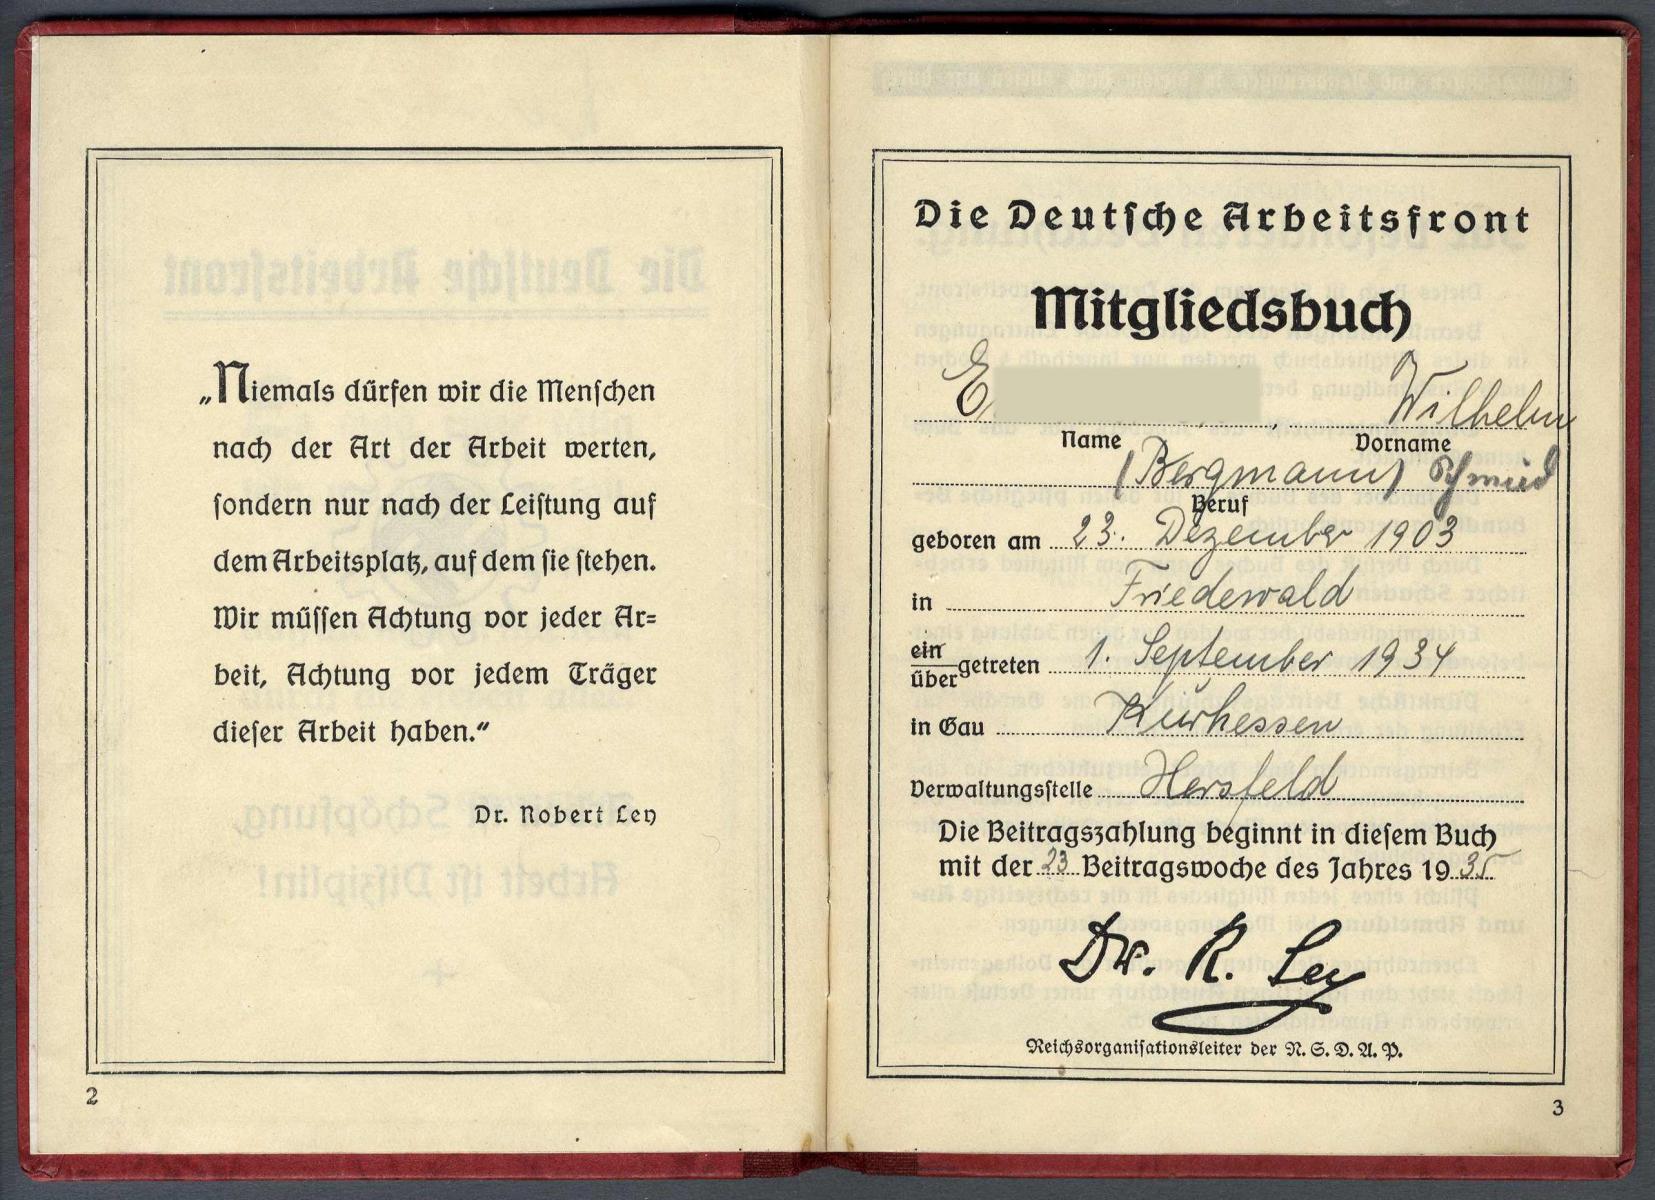 „Niemals dürfen wir die Menschen
nach der Art der Arbeit werten,
sondern nur nach der Leistung auf
dem Arbeitsplatz, auf dem sie stehen.
Wir müssen Achtung vor jeder Ar=
beit, Achtung vor jedem Träger
dieser Arbeit haben.“
Dr. Robert Ley
2
Die Deutsche Arbeitsfront
Mitgliedsbuch
E Wilhelm
Name Vorname
(Bergmann) Schmied
Beruf
geboren am 23. Dezember 1903
in Friedewald
ein
über getreten 1. September 1934
in Gau Kurhessen
Verwaltungsstelle Hersfeld
Die Beitragszahlung beginnt in diesem Buch
mit der 23 Beitragswoche des Jahres 1935
Dr. R. Ley
Reichsorganisationsleiter der N. S. D. A. P.
3